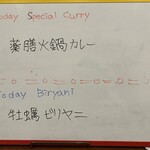 Today Special Curry
薬膳火鍋カレー
Today Biryani
牡蠣ビリヤニ